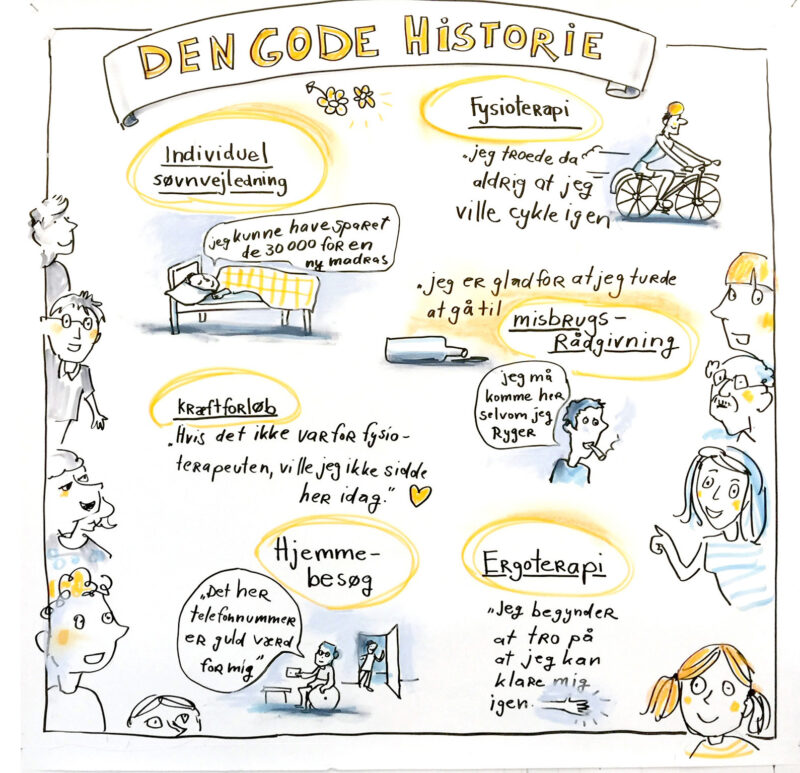 DEN GODE HISTORIE
Individuel
søvnvejledning
jeg kunne have sparet
de 30 000 for en
ny madras
Fysioterapi
"jeg troede da
aldrig at jeg
ville cykle igen
"jeg er glad for at jeg turde
at gå til
misbrugs-
Rådgivning
jeg må
komme her
selvom jeg
Ryger
kræftforløb
"Hvis det ikke var for fysio-
terapeuten, ville jeg ikke sidde
her idag."
Hjemme-
besøg
"Det her
telefonnummer
er guld værd
for mig"
Ergoterapi
"Jeg begynder
at tro på
at jeg kan
klare mig
igen.